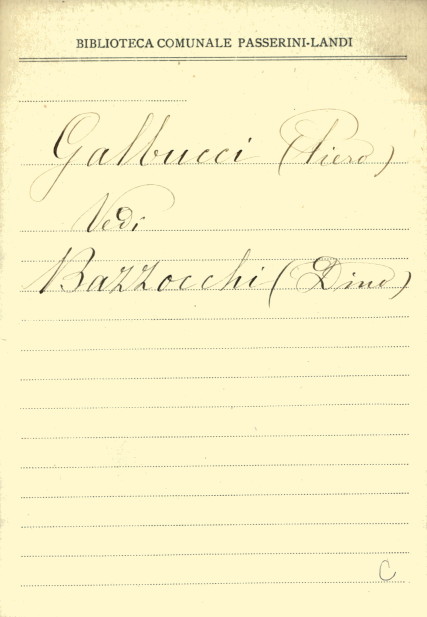 BIBLIOTECA COMUNALE PASSERINI-LANDI
Galbucci (Piero)
Vedi
Bazzocchi (Dino)
C